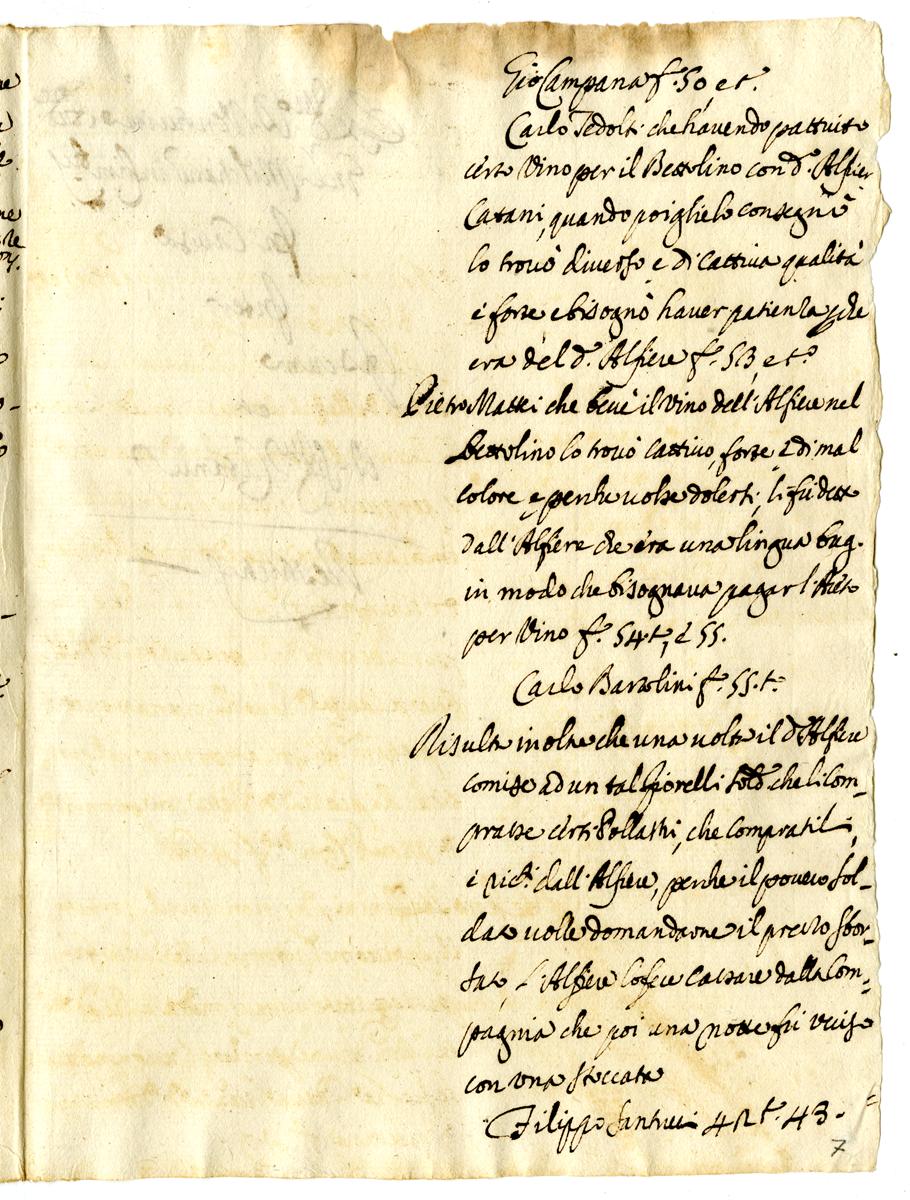 Gio Campana f.º 50 e t.º
Carlo Tedolti che havendo pattuito
certo Vino per il Bettolino con d.º Alfier
Catani, quando poi glielo consegnò
lo trovò diverso e di cattiva qualità
e forte e bisognò haver patienza p che
era del d.º Alfiere f.º 53, e t.º
Pietro Mattei che bevè il Vino dell'Alfiere nel
Bettolino lo trovò cattivo, forte e di mal
colore e perche volse dolersi, li fù detto
dall'Alfiere che era una lingua bug.
in modo che bisognava pagar l'Aceto
per Vino f.º 54 t.º, e 55.
Carlo Bartolini f.º 55. t.º
Risulta inoltre che una volta il d.º Alfiere
comise ad un tal Fiorelli sold.º che li com=
prasse certi Pollastri, che compratili,
e ric.ti dall'Alfiere, perche il povero sol=
dato volle domandarne il prezzo sbor=
sato, l'Alfiere lo fece cassare dalla Com=
pagnia che poi una notte fù ucciso
con una stoccata
Filippo Santucci 42 t.º 43.
7